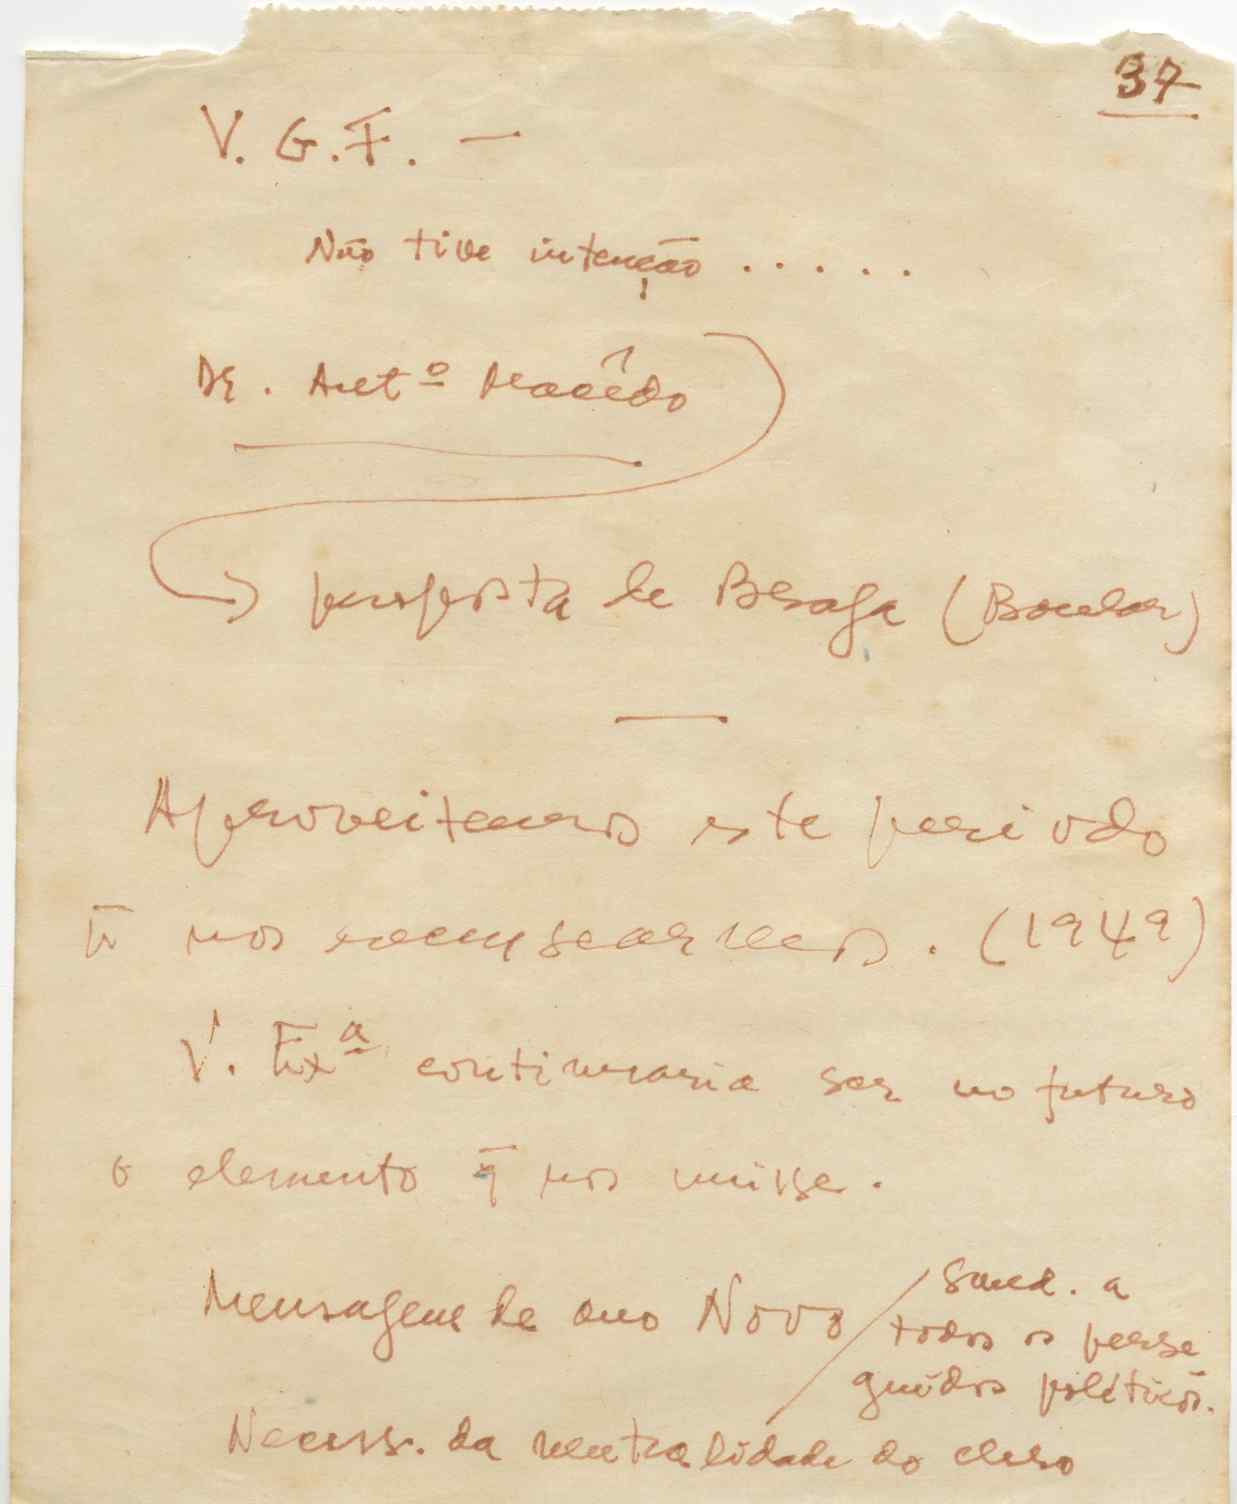 37
V. G. F. —
Não tive intenção . . . . .
Dr. Antº Macêdo
proposta de Braga (Bacelar)
Aproveitemos este periodo
p nos
. (1949)
V. Exª continuaria ser no futuro
o elemento q̄ nos unisse.
Mensagem de ano Novo
saud. a
todos os perse
guidos políticos.
Necess. da neutralidade do clero